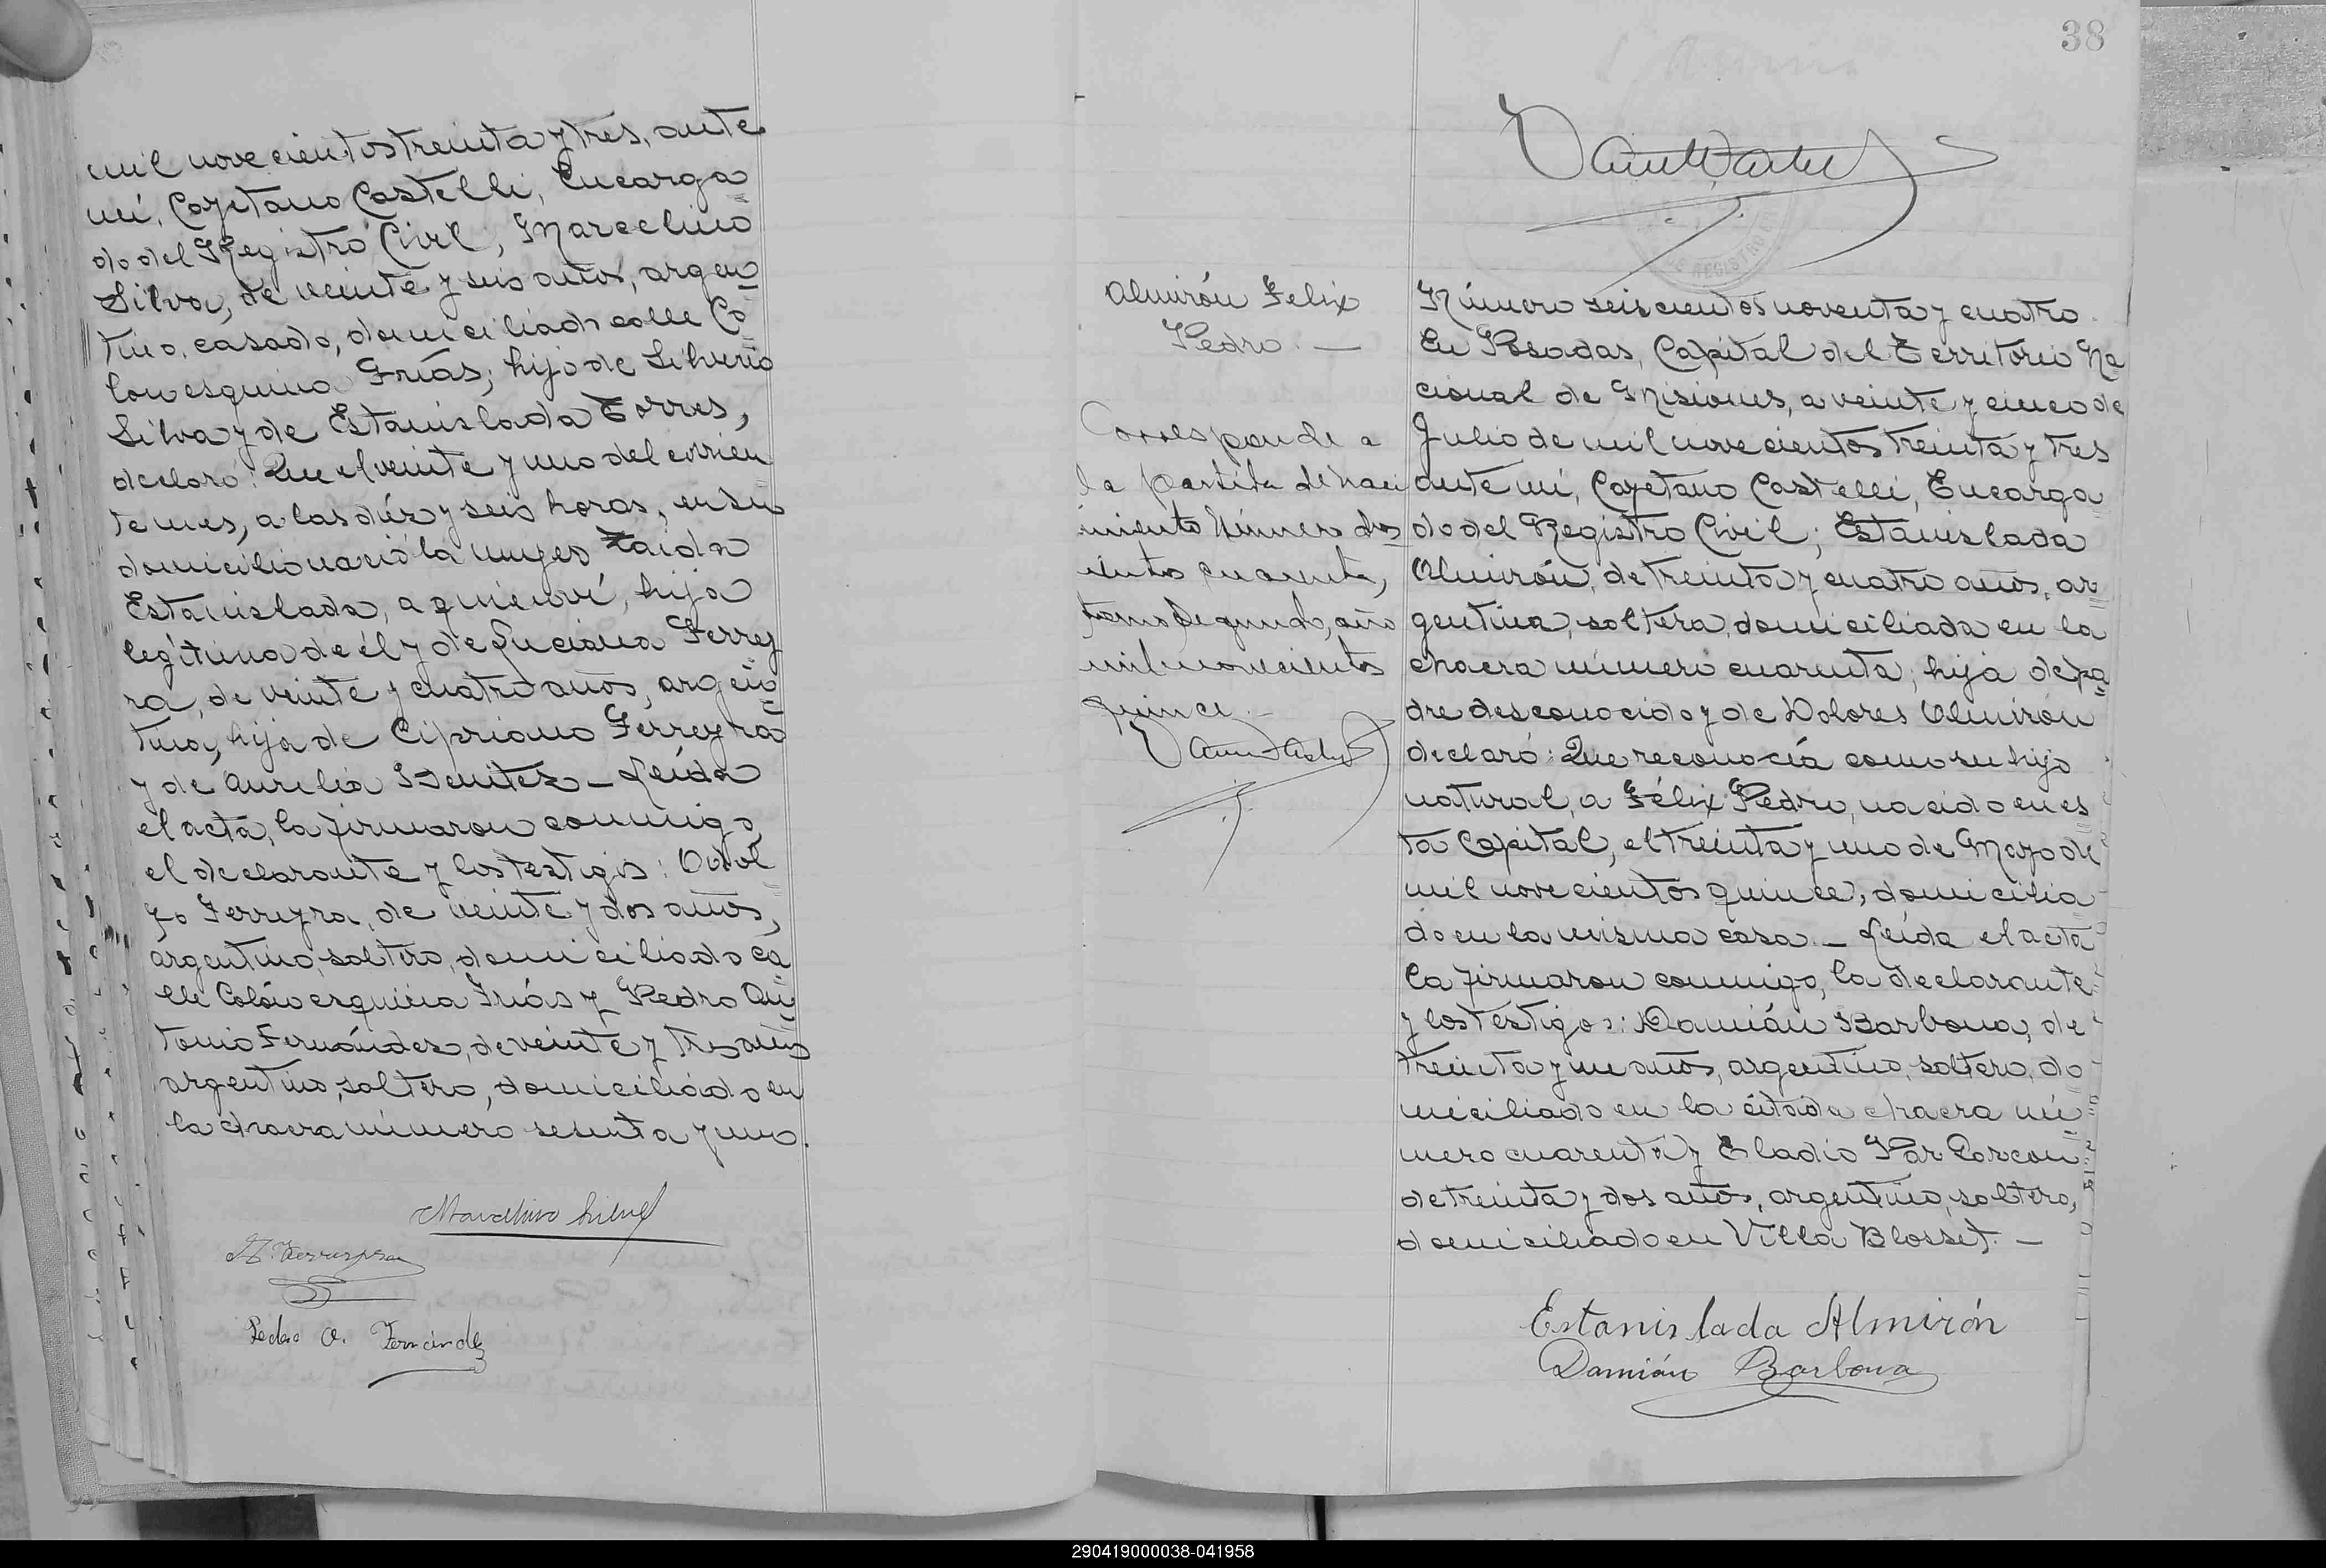 mil novecientos treinta y tres, ante
mí, Cayetano Castelli, Encarga
do del Registro Civil, Marcelino
Silva, de veinte y seis años, argen=
tino, casado, domiciliado calle Co=
lon esquina Frías; hijo de Silverio
Silva y de Estanislada Torres,
declaró: Que el veinte y uno del corrien=
te mes, a las diéz y seis horas, en su
domicilio nació la mujer Zaida
Estanislada, a quien ví, hija
legítima de él y de Luciana Ferrey
ra, de veinte y cuatro años, argen=
tina, hija de Cipriano Ferreyra
y de Aurelia Benitez - Leída
el acta, la firmaron conmigo,
el declarante y los testigos: Odol
fo Ferreyra, de veinte y dos años,
argentino, soltero, domiciliado ca=
lle Colón esquina Frías y Pedro An=
tonio Fernández, de veinte y tres años
argentino, soltero, domiciliado en
la chacra número sesenta y uno.
Marcelino Silva
Ferreyra
Pedro A. Fernández
38
Almirón Felix
Pedro. —
Corresponde a
la partida de naci
miento Número dos
cientos cuarenta,
tomo Segundo, año
mil novecientos
quince.
Número seiscientos noventa y cuatro.
En Posadas, Capital del Territorio Na
cional de Misiones, a veinte y cinco de
Julio de mil novecientos treinta y tres
ante mí, Cayetano Castelli, Encarga
do del Registro Civil; Estanislada
Almirón, de treinta y cuatro años, ar=
gentina, soltera, domiciliada en la
chacra número cuarenta; hija de pa=
dre desconocido y de Dolores Almirón
declaró: Que reconocía como su hijo
natural, a Félix Pedro, nacido en es=
ta Capital, el treinta y uno de Mayo de
mil novecientos quince, domicilia=
do en la misma casa. — Leída el acta
la firmaron conmigo, la declarante
y los testigos: Damián Barbona, de
treinta y un años, argentino, soltero, do=
miciliado en la citada chacra nú=
mero cuarenta y Eladio
de treinta y dos años, argentino, soltero,
domiciliado en Villa Blosset. —
Estanislada Almirón
Damián Barbona
290419000038-041958